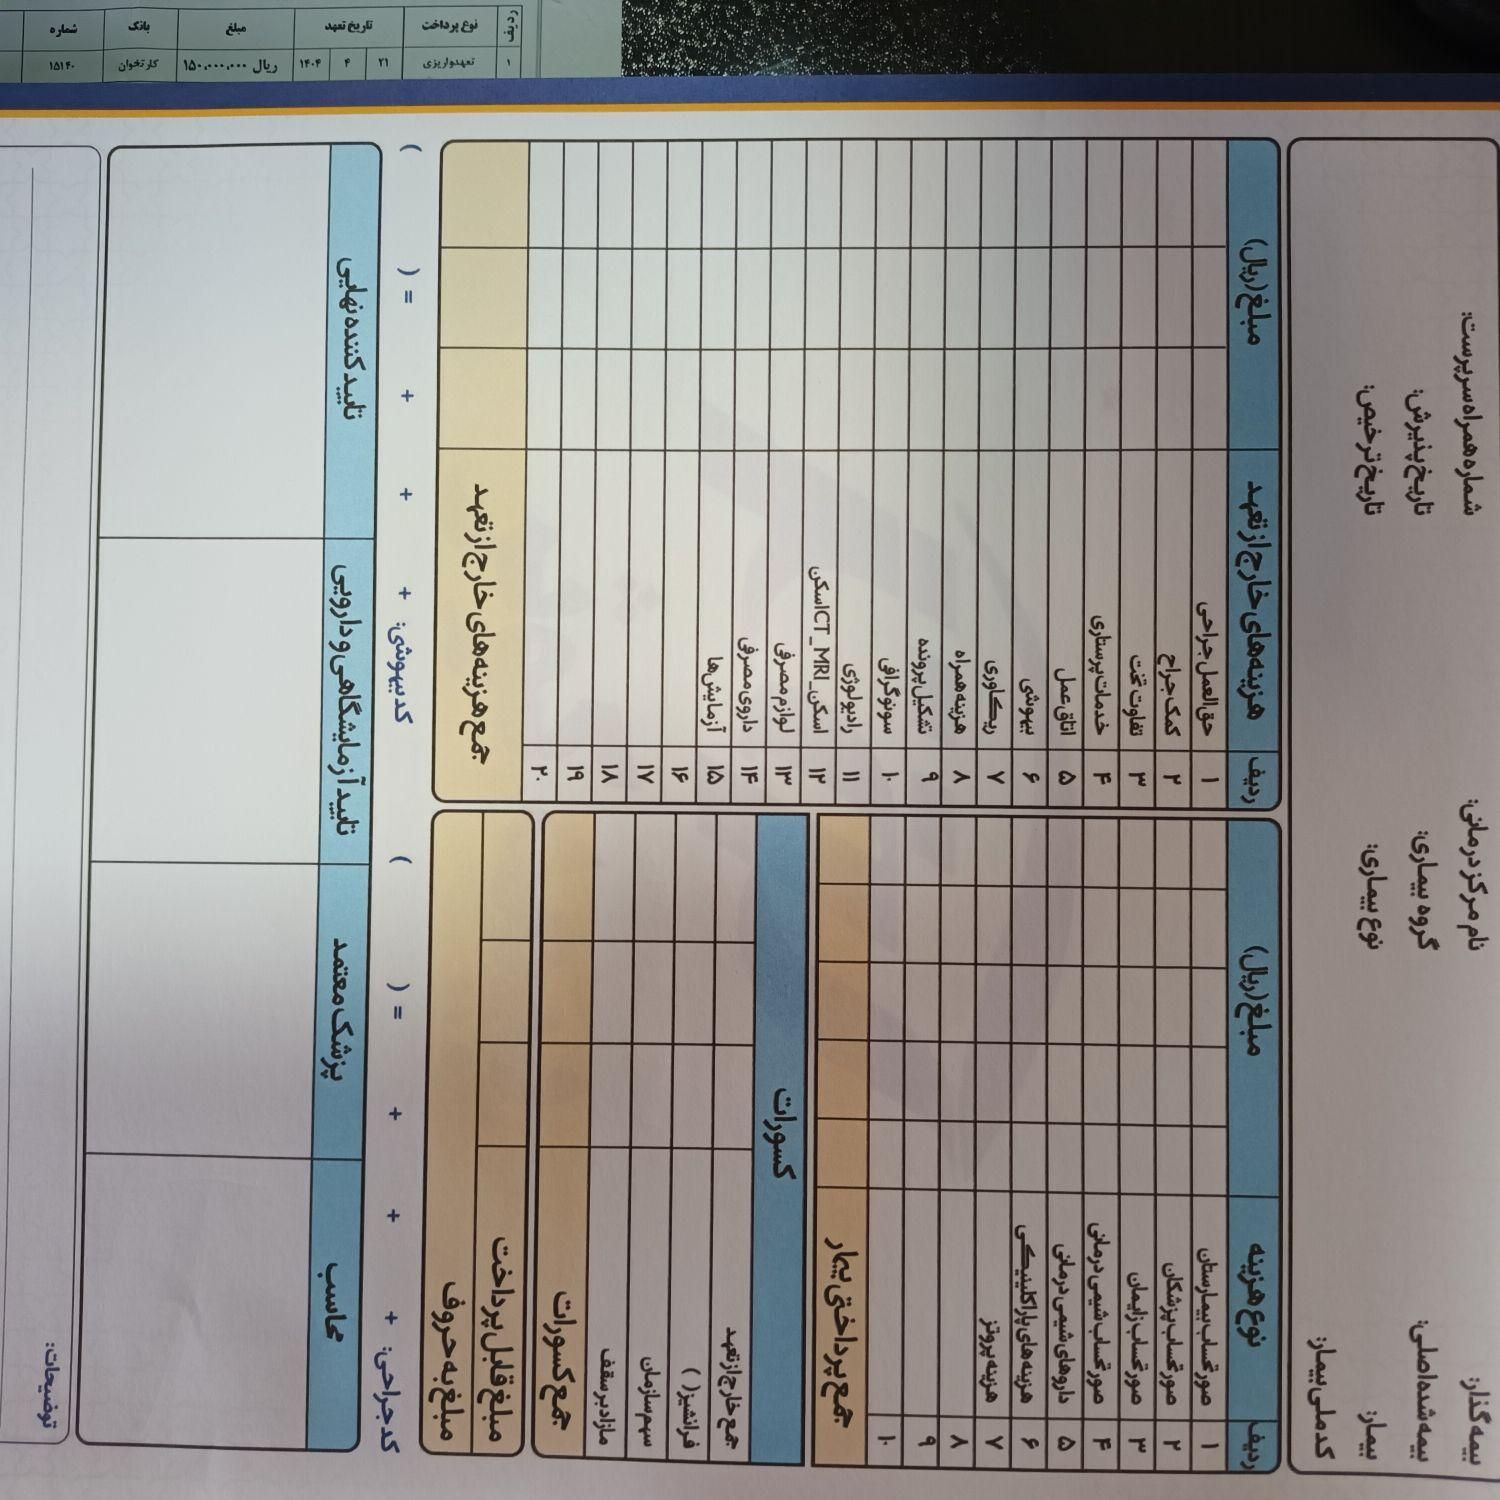 ردیف نوع پرداخت تاریخ تعهد مبلغ بانک شماره
۱ تعهدواریزی ۲۱ ۴ ۱۴۰۴ ۱۵۰,۰۰۰,۰۰۰ ریال کارتخوان ۱۵۱۴۰
بیمه گذار: نام مرکز درمانی: شماره همراه سرپرست:
بیمه شده اصلی: گروه بیماری: تاریخ پذیرش:
بیمار: نوع بیماری: تاریخ ترخیص:
کد ملی بیمار:
ردیف نوع هزینه مبلغ (ریال)
۱ صورتحساب بیمارستان
۲ صورتحساب پزشکان
۳ صورتحساب زایمان
۴ صورتحساب شیمی درمانی
۵ داروهای شیمی درمانی
۶ هزینه های پاراکلینیکی
۷ هزینه پروتز
۸
۹
۱۰
جمع پرداختی بیمار
کسورات
جمع خارج از تعهد
فرانشیز ( )
سهم سازمان
مازاد بر سقف
جمع کسورات
مبلغ قابل پرداخت
مبلغ به حروف
ردیف هزینه های خارج از تعهد مبلغ (ریال)
۱ حق العمل جراحی
۲ کمک جراح
۳ تفاوت تخت
۴ خدمات پرستاری
۵ اتاق عمل
۶ بیهوشی
۷ ریکاوری
۸ هزینه همراه
۹ تشکیل پرونده
۱۰ سونوگرافی
۱۱ رادیولوژی
۱۲ اسکن_CT_MRI اسکن
۱۳ لوازم مصرفی
۱۴ داروی مصرفی
۱۵ آزمایش ها
۱۶
۱۷
۱۸
۱۹
۲۰
جمع هزینه های خارج از تعهد
کد جراحی: + + + = ( ) کد بیهوشی: + + + = ( )
محاسب پزشک معتمد تایید آزمایشگاهی و دارویی تایید کننده نهایی
توضیحات: